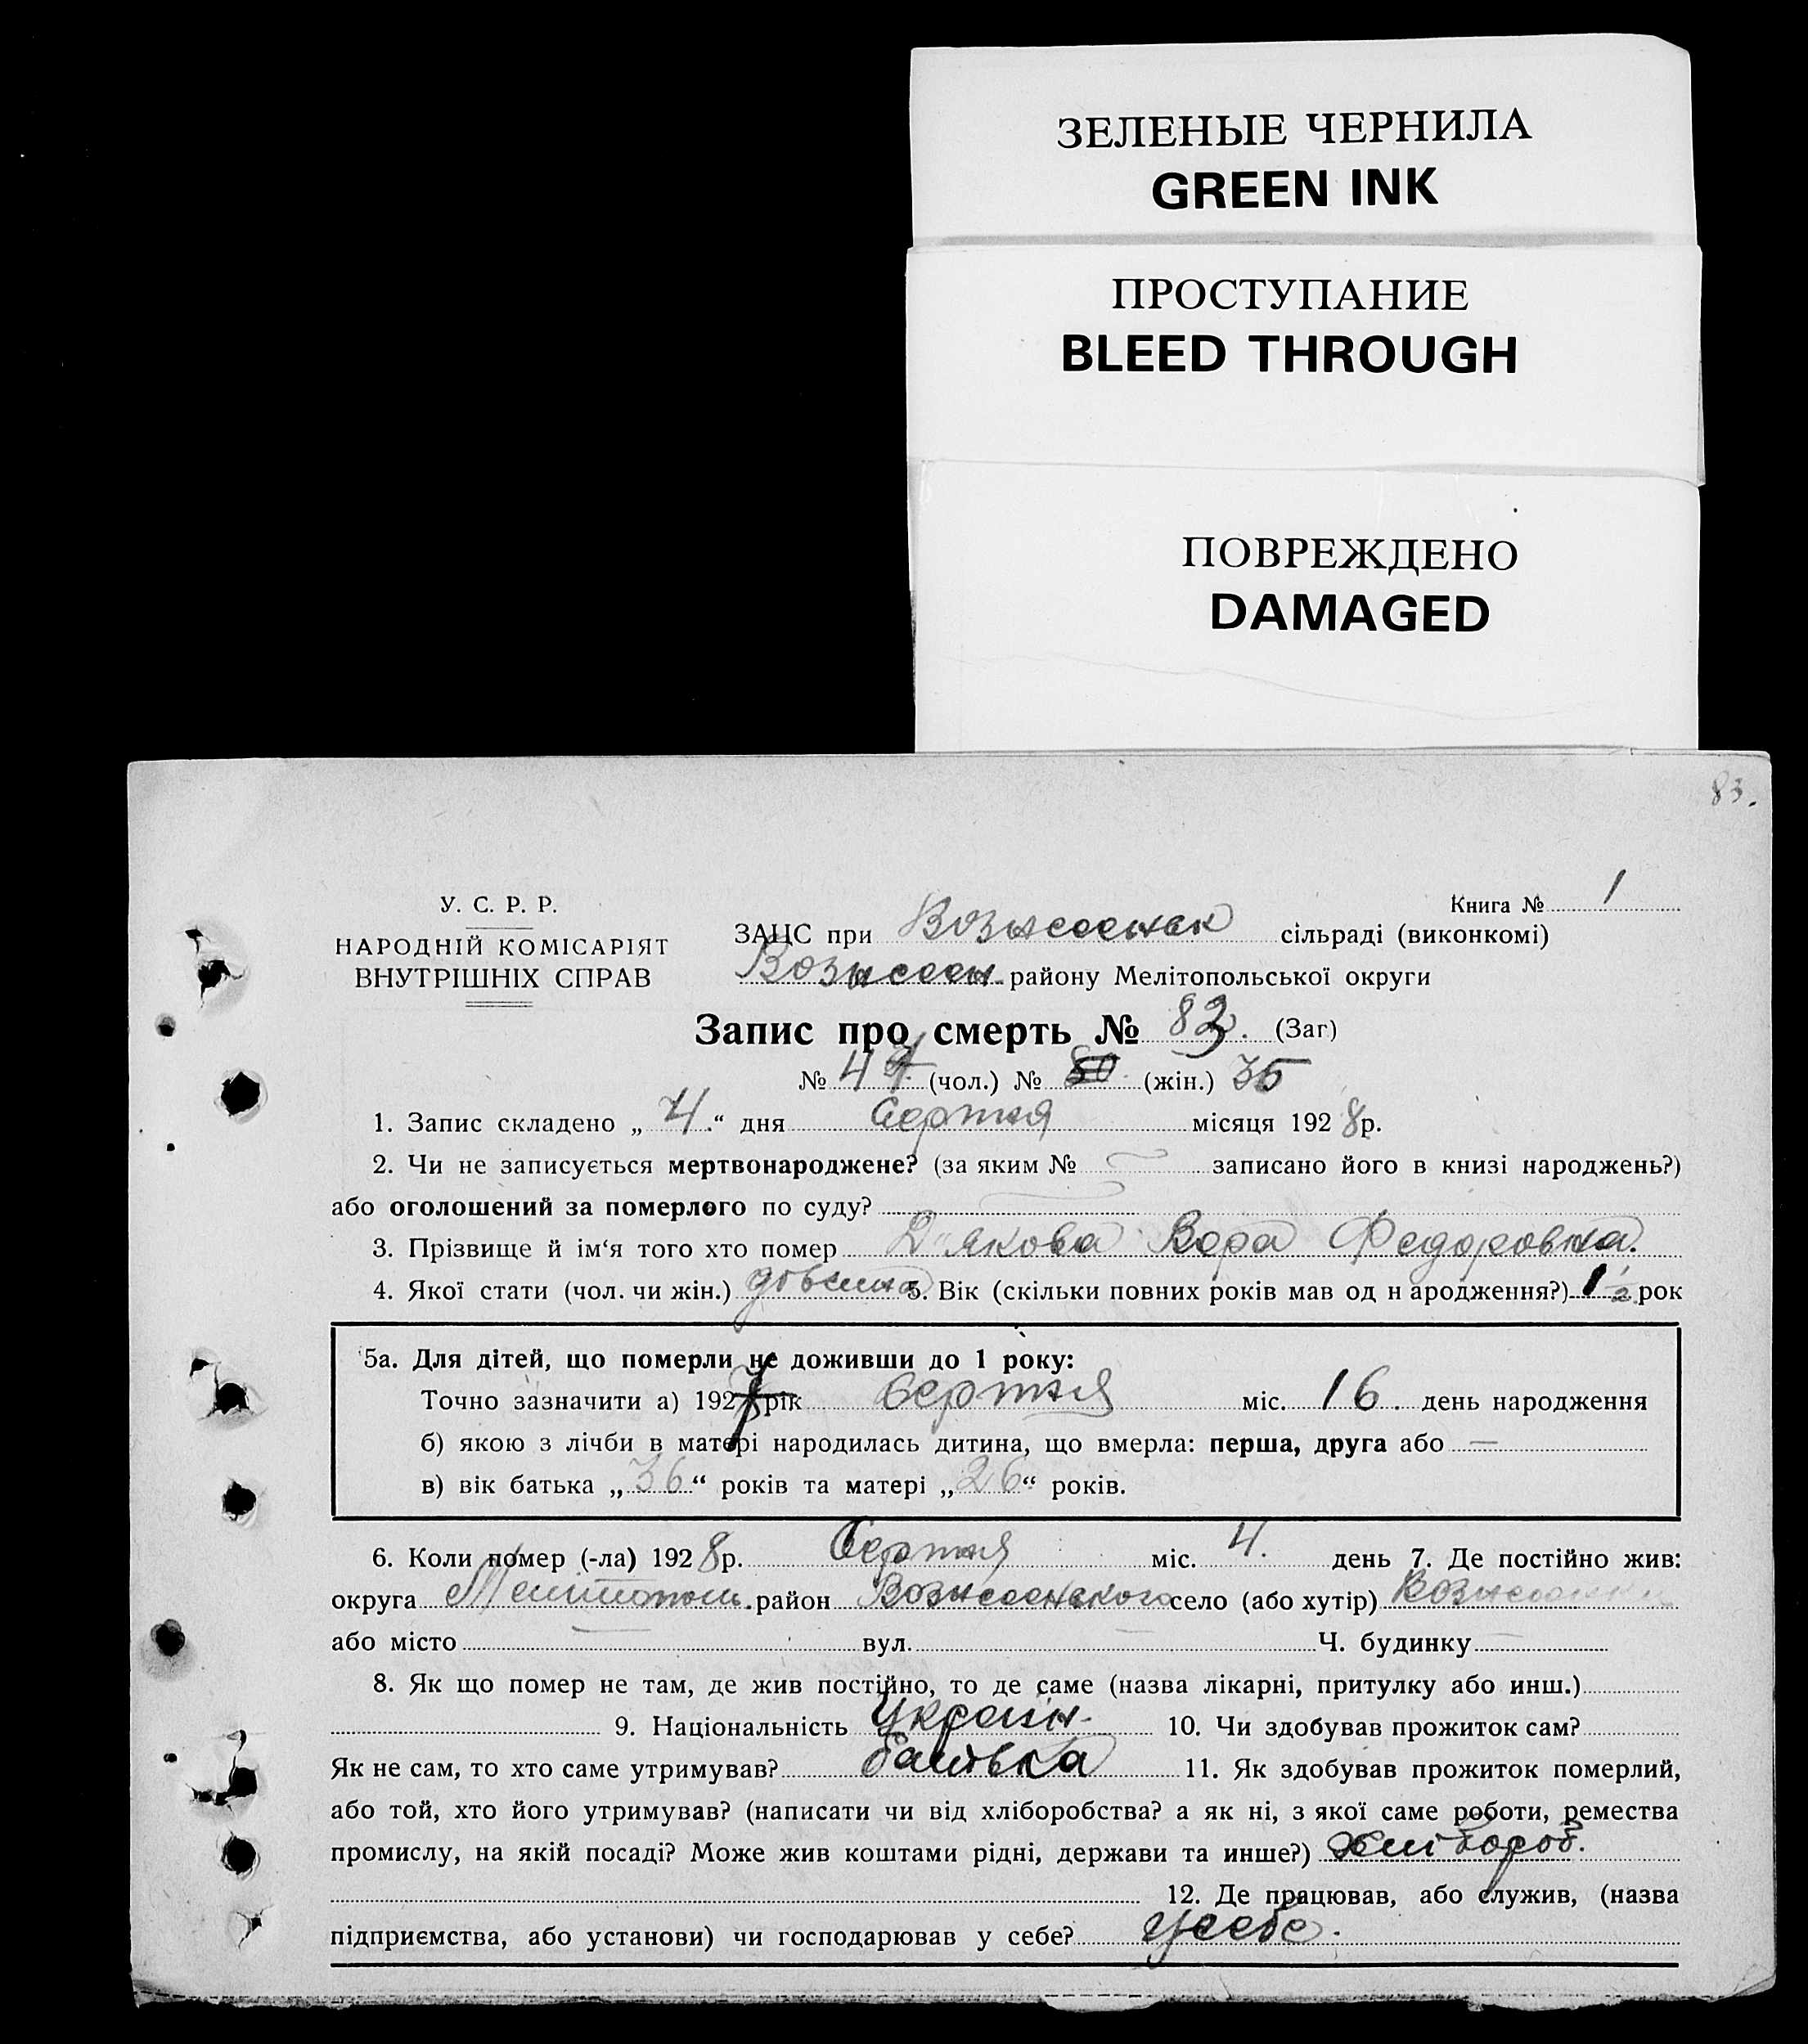 ЗЕЛЕНЫЕ ЧЕРНИЛА
GREEN INK
ПРОСТУПАНИЕ
BLEED THROUGH
ПОВРЕЖДЕНО
DAMAGED
83.
У. С. Р. Р.
НАРОДНІЙ КОМІСАРІЯТ
ВНУТРІШНІХ СПРАВ
Книга № 1
ЗАЦС при Вознесенськ сільраді (виконкомі)
Вознесен. району Мелітопольської округи
Запис про смерть № 83. (Заг)
№ 47 (чол.) № 80 (жін.) 35
1. Запис складено „ 4 “ дня Серпня місяця 1928р.
2. Чи не записується мертвонароджене? (за яким № записано його в книзі народжень?)
або оголошений за померлого по суду?
3. Прізвище й ім‘я того хто помер Д'якова Вера Федоровна.
4. Якої стати (чол. чи жін.) 5. Вік (скільки повних років мав од н ародження?) 1 1/2 рок
5а. Для дітей, що померли не доживши до 1 року:
Точно зазначити а) 1927 рік Серпня міс. 16. день народження
б) якою з лічби в матері народилась дитина, що вмерла: перша, друга або —
в) вік батька „ 36 “ років та матері „ 26 “ років.
6. Коли помер (-ла) 1928р. Серпня міс. 4. день 7. Де постійно жив:
округа Мелітополь. район Вознесенського село (або хутір)
або місто — вул. — Ч. будинку —
8. Як що помер не там, де жив постійно, то де саме (назва лікарні, притулку або инш.)
9. Національність Україн. 10. Чи здобував прожиток сам?
Як не сам, то хто саме утримував? батька 11. Як здобував прожиток померлий,
або той, хто його утримував? (написати чи від хліборобства? а як ні, з якої саме роботи, ремества
промислу, на якій посаді? Може жив коштами рідні, держави та инше?) хлібороб.
12. Де працював, або служив, (назва
підприємства, або установи) чи господарював у себе? у себе.